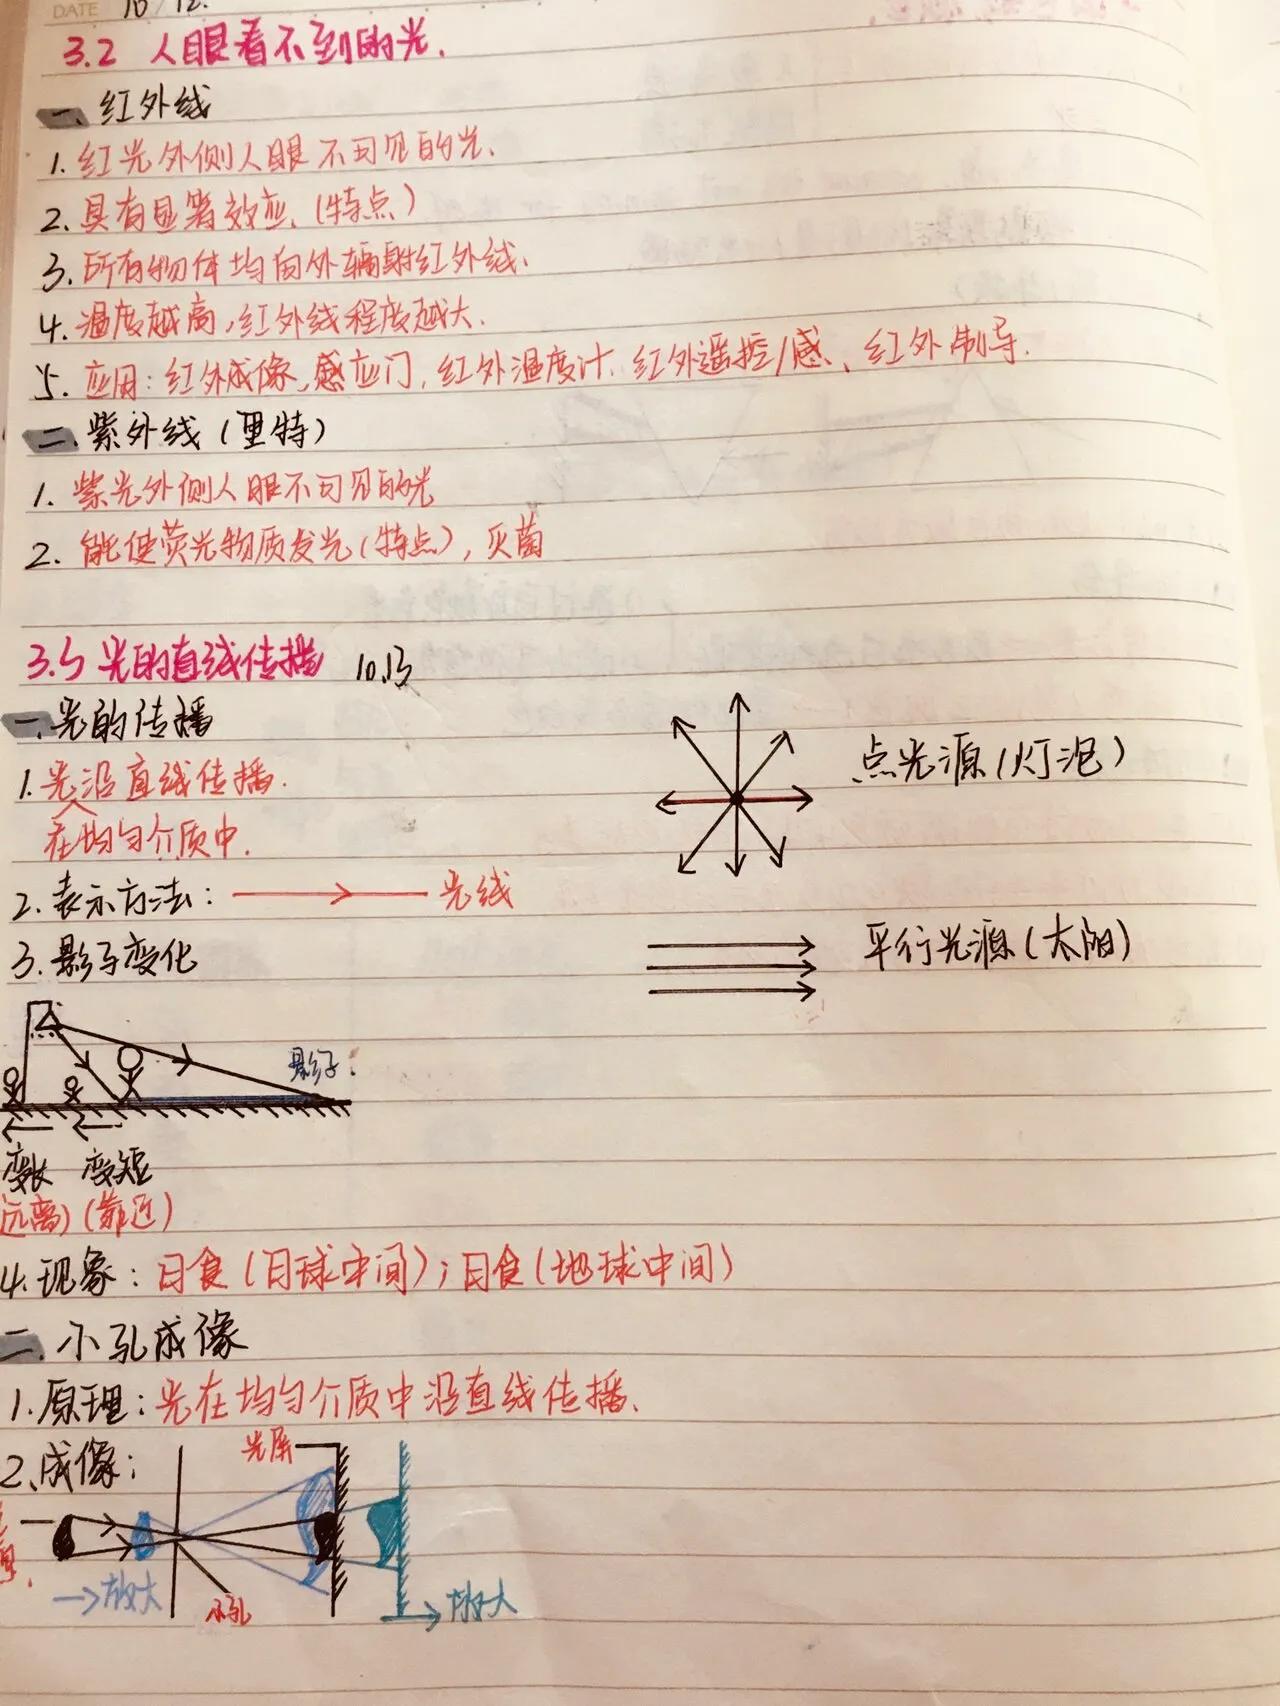 DATE 10/12.
3.2 人眼看不到的光.
一. 红外线
1. 红光外侧人眼不可见的光.
2. 具有显著效应.(特点)
3. 所有物体均向外辐射红外线.
4. 温度越高,红外线程度越大.
5. 应用: 红外成像,感应门,红外温度计.红外遥控/感、红外制导.
二.紫外线(里特)
1. 紫光外侧人眼不可见的光
2. 能使荧光物质发光(特点),灭菌
3.5 光的直线传播 10.13
一.光的传播
1. 光沿直线传播.
在均匀介质中.
点光源(灯泡)
2. 表示方法: 光线
3. 影子变化
平行光源(太阳)
影子.
变长 变短
远离) (靠近)
4. 现象: 日食(日球中间);日食(地球中间)
二. 小孔成像
1. 原理: 光在均匀介质中沿直线传播.
2、成像:
光屏
→放大
小孔
放大